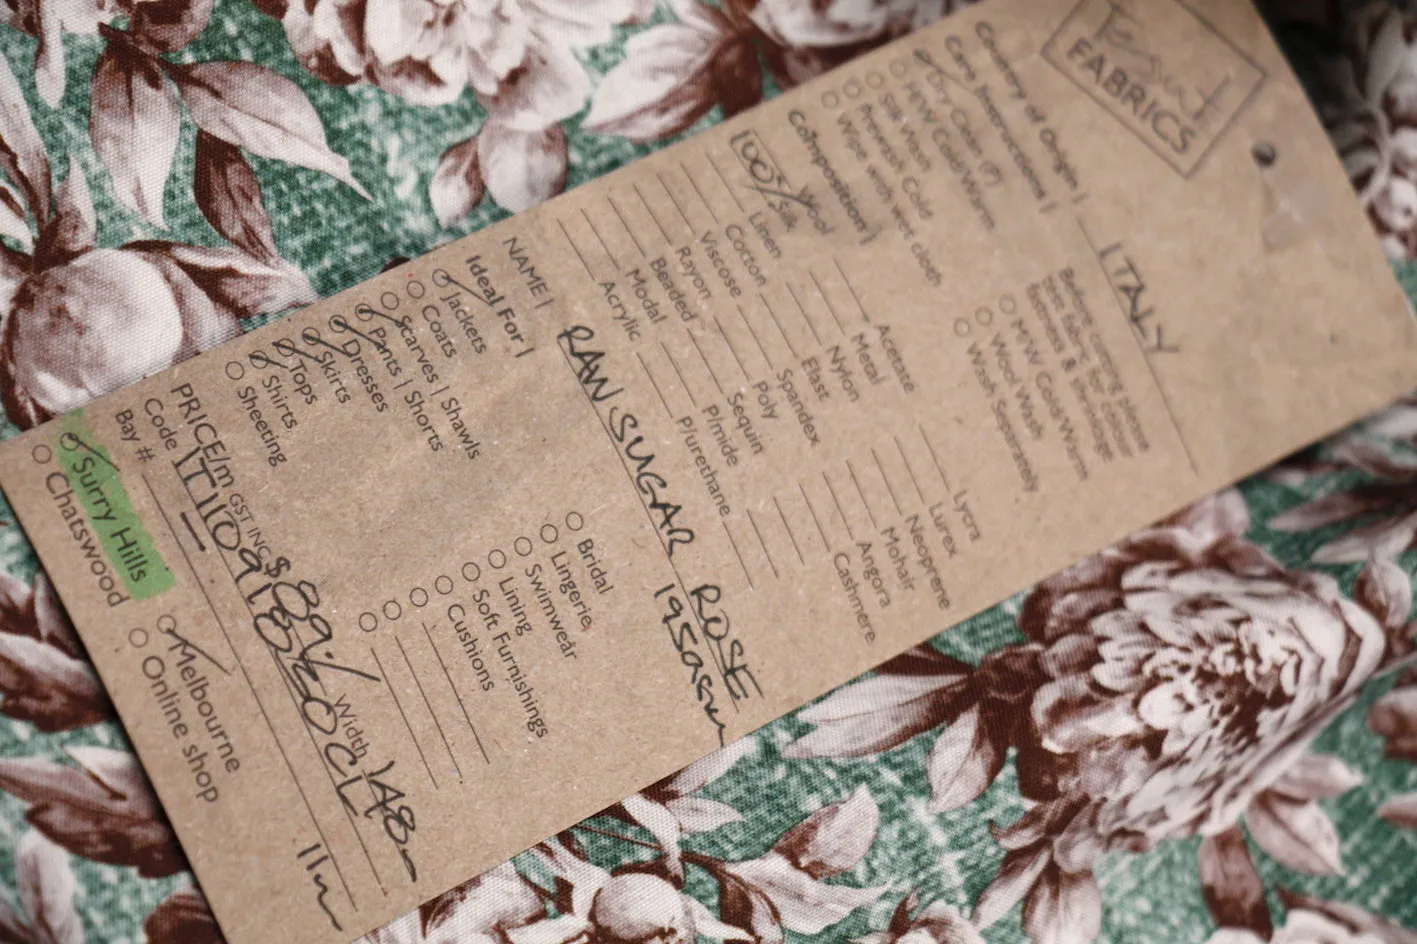 Tessuti
FABRICS
Country of Origin | ITALY
Care Instructions |
Dry Clean (P)
H/W Cold/Warm
Silk Wash
Prewash Cold
Wipe with wet cloth
Before cutting please
test fabric for colour
fastness & shrinkage
M/W Cold/Warm
Wool Wash
Wash Separately
Composition |
Wool
100% Silk
Linen
Cotton
Viscose
Rayon
Beaded
Modal
Acrylic
Acetate
Metal
Nylon
Elast
Spandex
Poly
Sequin
P/mide
P/urethane
Lycra
Lurex
Neoprene
Mohair
Angora
Cashmere
NAME | RAW SUGAR ROSE
195gsm
Ideal For |
Jackets
Coats
Scarves | Shawls
Pants | Shorts
Dresses
Skirts
Tops
Shirts
Sheeting
Bridal
Lingerie
Swimwear
Lining
Soft Furnishings
Cushions
PRICE/m GST INC $ 89 Width 148
Code
Bay #
11m
Surry Hills
Chatswood
Melbourne
Online shop